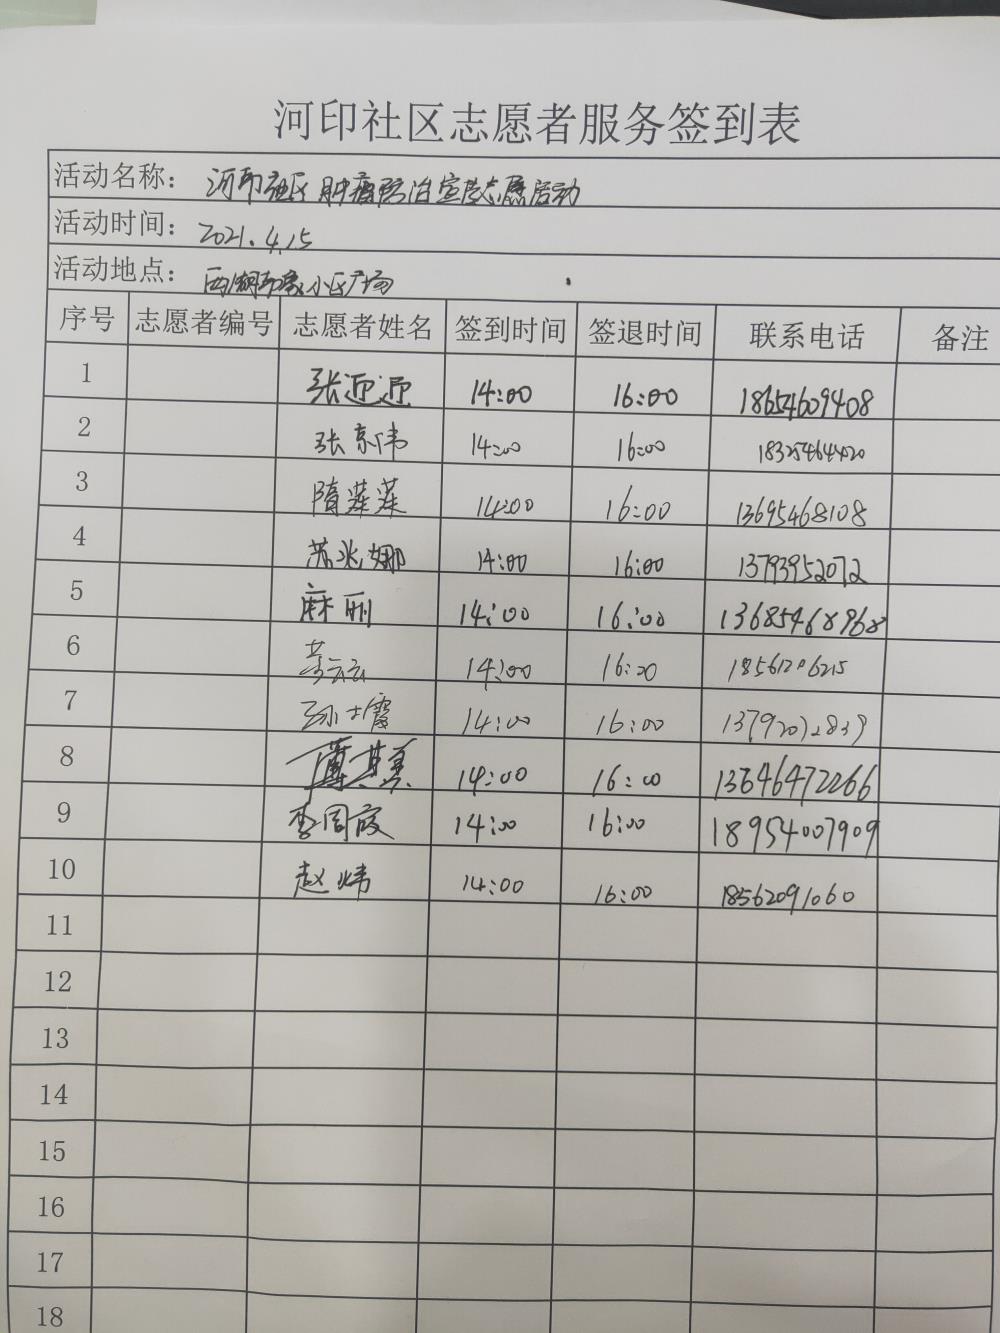 河印社区志愿者服务签到表
活动名称： 河印社区肿瘤防治宣传志愿活动
活动时间： 2021.4.15
活动地点： 西湖印象小区广场
序号 志愿者编号 志愿者姓名 签到时间 签退时间 联系电话 备注
1 张迎迎 14:00 16:00 18654609408
2 张京伟 14:00 16:00 18325464420
3 隋莲莲 14:00 16:00 13695468108
4 苏兆娜 14:00 16:00 13793952072
5 麻丽 14:00 16:00 13685468968
6 云云 14:00 16:00 18561206215
7 孙士霞 14:00 16:00
8 14:00 16:00 13646472266
9 李同霞 14:00 16:00 18954007909
10 赵炜 14:00 16:00 18562091060
11
12
13
14
15
16
17
18